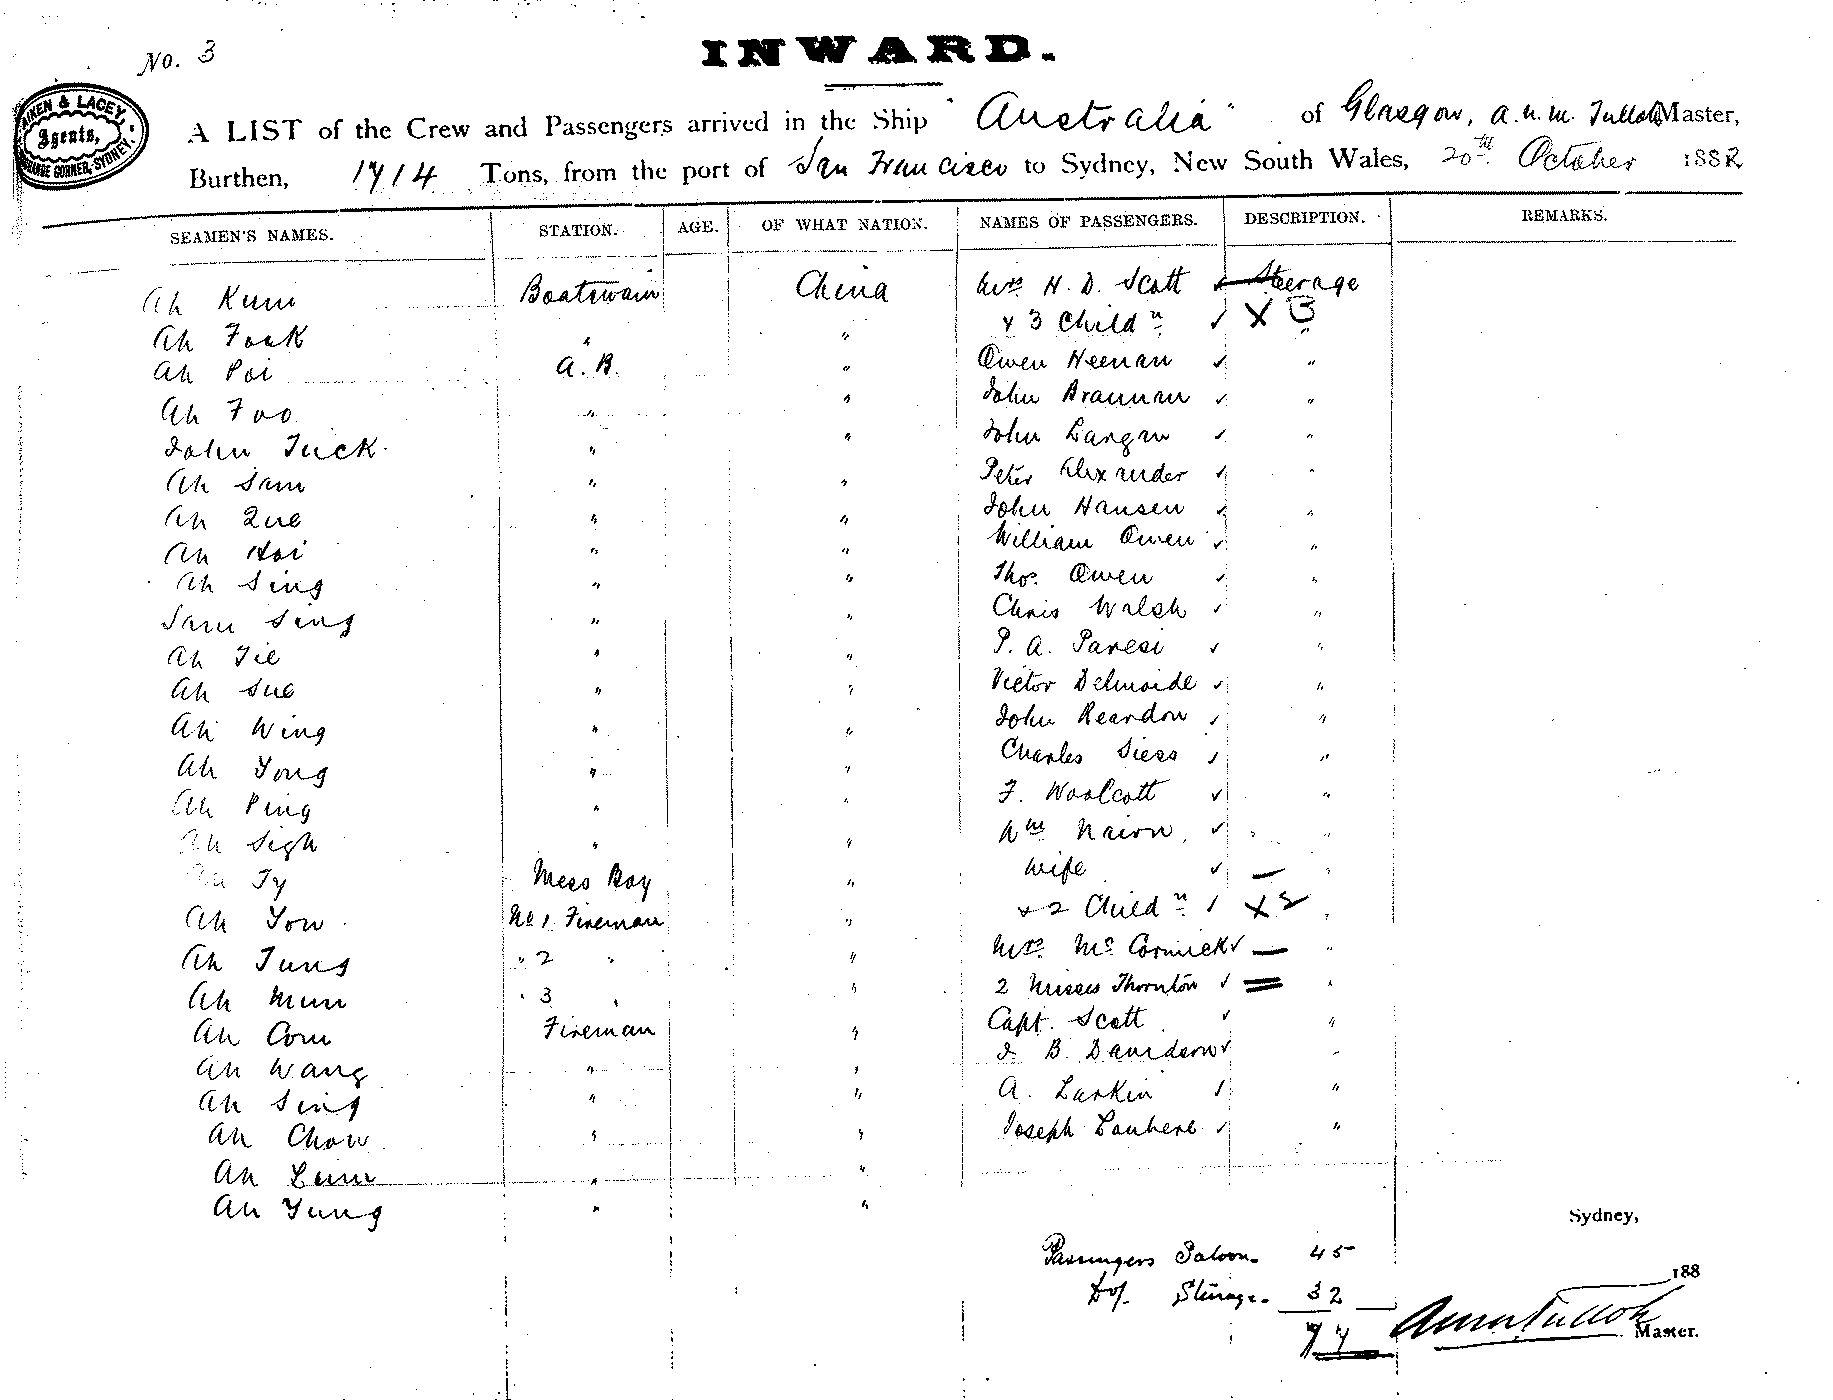 No. 3
INWARD.
AIKEN & LACEY,
Agents,
GRANGE CORNER, SYDNEY.
A LIST of the Crew and Passengers arrived in the Ship "Australia" of Glasgow, A. N. M. Tulloh Master,
Burthen, 1714 Tons, from the port of San Francisco to Sydney, New South Wales, 20th October 1882
SEAMEN'S NAMES. STATION. AGE. OF WHAT NATION. NAMES OF PASSENGERS. DESCRIPTION. REMARKS.
Ah Kum Boatswain China Mrs H. D. Scott ✓ Steerage
Ah Fook " " + 3 Childn ✓ X 3 "
Ah Poi A. B. " Owen Heenan ✓ "
Ah Foo " " John Brannan ✓ "
John Tuck " " John Langan ✓ "
Ah Sam " " Peter Alexander ✓ "
Ah Que " " John Hansen ✓ "
Ah Hoi " " William Owen ✓ "
Ah Sing " " Thos. Owen ✓ "
Sam Sing " " Chris Walsh ✓ "
Ah Tie " " P. A. Paresi ✓ "
Ah Sue " " Victor ✓ "
Ah Wing " " John Reardon ✓ "
Ah Yong " " Charles Siess ✓ "
Ah Ping " " F. Woolcott ✓ "
Ah Sigh " " Wm Nairn ✓ "
Ah Ty Mess Boy " wife ✓ — "
Ah You No 1 Fireman " + 2 Childn ✓ X 2 "
Ah Tung " 2 " " Mrs McCormick ✓ — "
Ah Mun " 3 " " 2 Misses Thornton ✓ = "
Ah Com Fireman " Capt. Scott ✓ "
Ah Wang " " J. B. Davidson ✓ "
Ah Sing " " A. Larkin ✓ "
Ah Chow " " Joseph Loubere ✓ "
Ah Lum " "
Ah Yung " "
Sydney,
Passengers Saloon. 45
Do. Steerage. 32
77
188
A N M Tulloh Master.